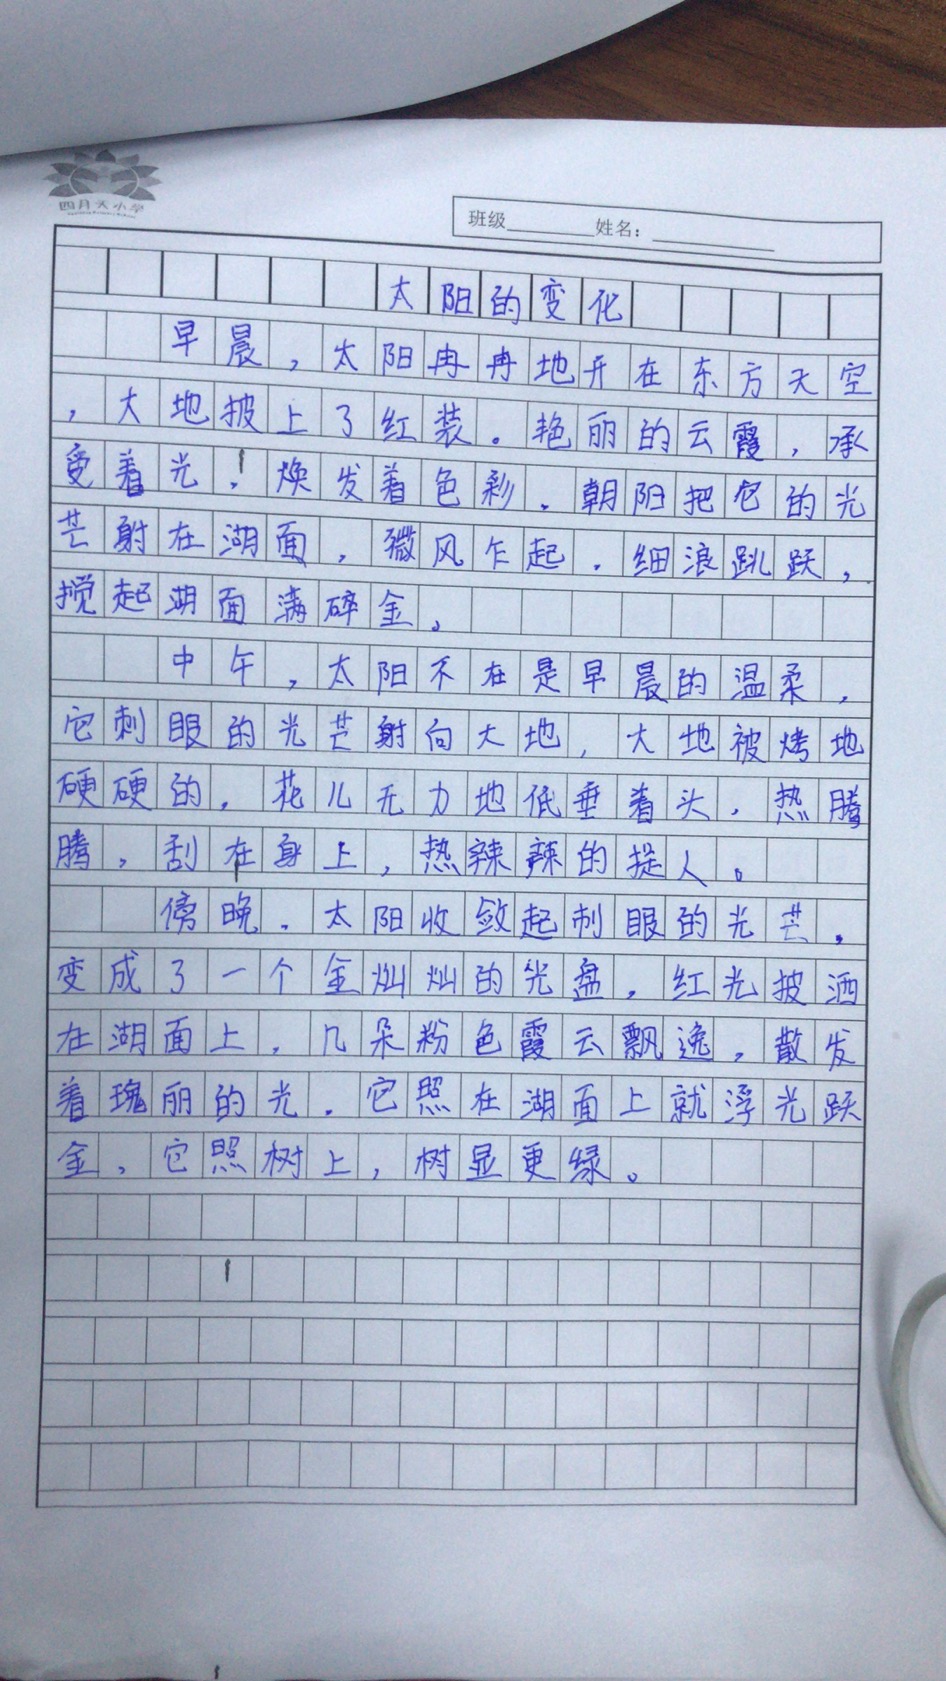 四月天小学
班级________姓名：__________
太阳的变化
早晨，太阳冉冉地升在东方天空
，大地披上了红装。艳丽的云霞，承
受着光，焕发着色彩。朝阳把它的光
芒射在湖面，微风乍起．细浪跳跃，
搅起湖面满碎金。
中午，太阳不在是早晨的温柔，
它刺眼的光芒射向大地，大地被烤地
硬硬的，花儿无力地低垂着头，热腾
腾，刮在身上，热辣辣的捉人。
傍晚．太阳收敛起刺眼的光芒，
变成了一个金灿灿的光盘，红光披洒
在湖面上，几朵粉色霞云飘逸，散发
着瑰丽的光．它照在湖面上就浮光跃
金，它照树上，树显更绿。